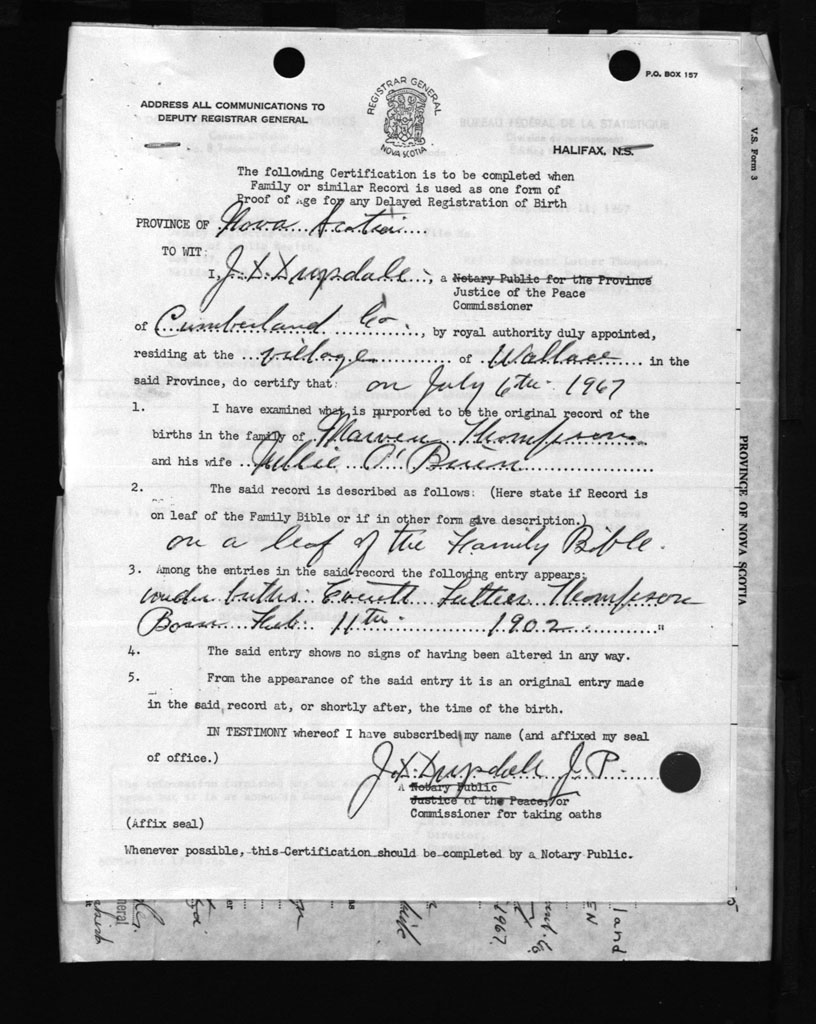 P.O. BOX 157
ADDRESS ALL COMMUNICATIONS TO
DEPUTY REGISTRAR GENERAL
REGISTRAR GENERAL
NOVA SCOTIA
HALIFAX, N.S.
V.S. Form 3
The following Certification is to be completed when
Family or similar Record is used as one form of
Proof of Age for any Delayed Registration of Birth
PROVINCE OF Nova Scotia
TO WIT:
I, J. D. Drysdale, a Notary Public for the Province
Justice of the Peace
Commissioner
of Cumberland Co., by royal authority duly appointed,
residing at the village of Wallace in the
said Province, do certify that: on July 6th 1967
1. I have examined what is purported to be the original record of the
births in the family of Thompson
and his wife O'Brien
2. The said record is described as follows: (Here state if Record is
on leaf of the Family Bible or if in other form give description.)
on a leaf of the Family Bible.
3. Among the entries in the said record the following entry appears:
under births: Everett Luther Thompson
Born Feb. 11th 1902 "
4. The said entry shows no signs of having been altered in any way.
5. From the appearance of the said entry it is an original entry made
in the said record at, or shortly after, the time of the birth.
IN TESTIMONY whereof I have subscribed my name (and affixed my seal
of office.)
J. D. Drysdale J. P.
A Notary Public
Justice of the Peace, or
Commissioner for taking oaths
(Affix seal)
Whenever possible, this Certification should be completed by a Notary Public.
PROVINCE OF NOVA SCOTIA
1967
land